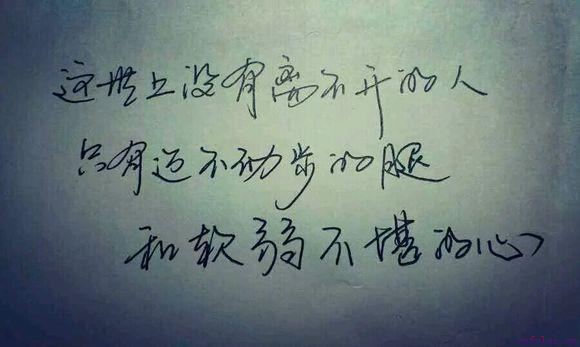 这世上没有离不开的人
只有迈不动步的腿
和软弱不堪的心